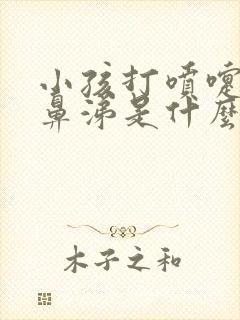 小孩打噴嚏
鼻涕是什麼
木子之和